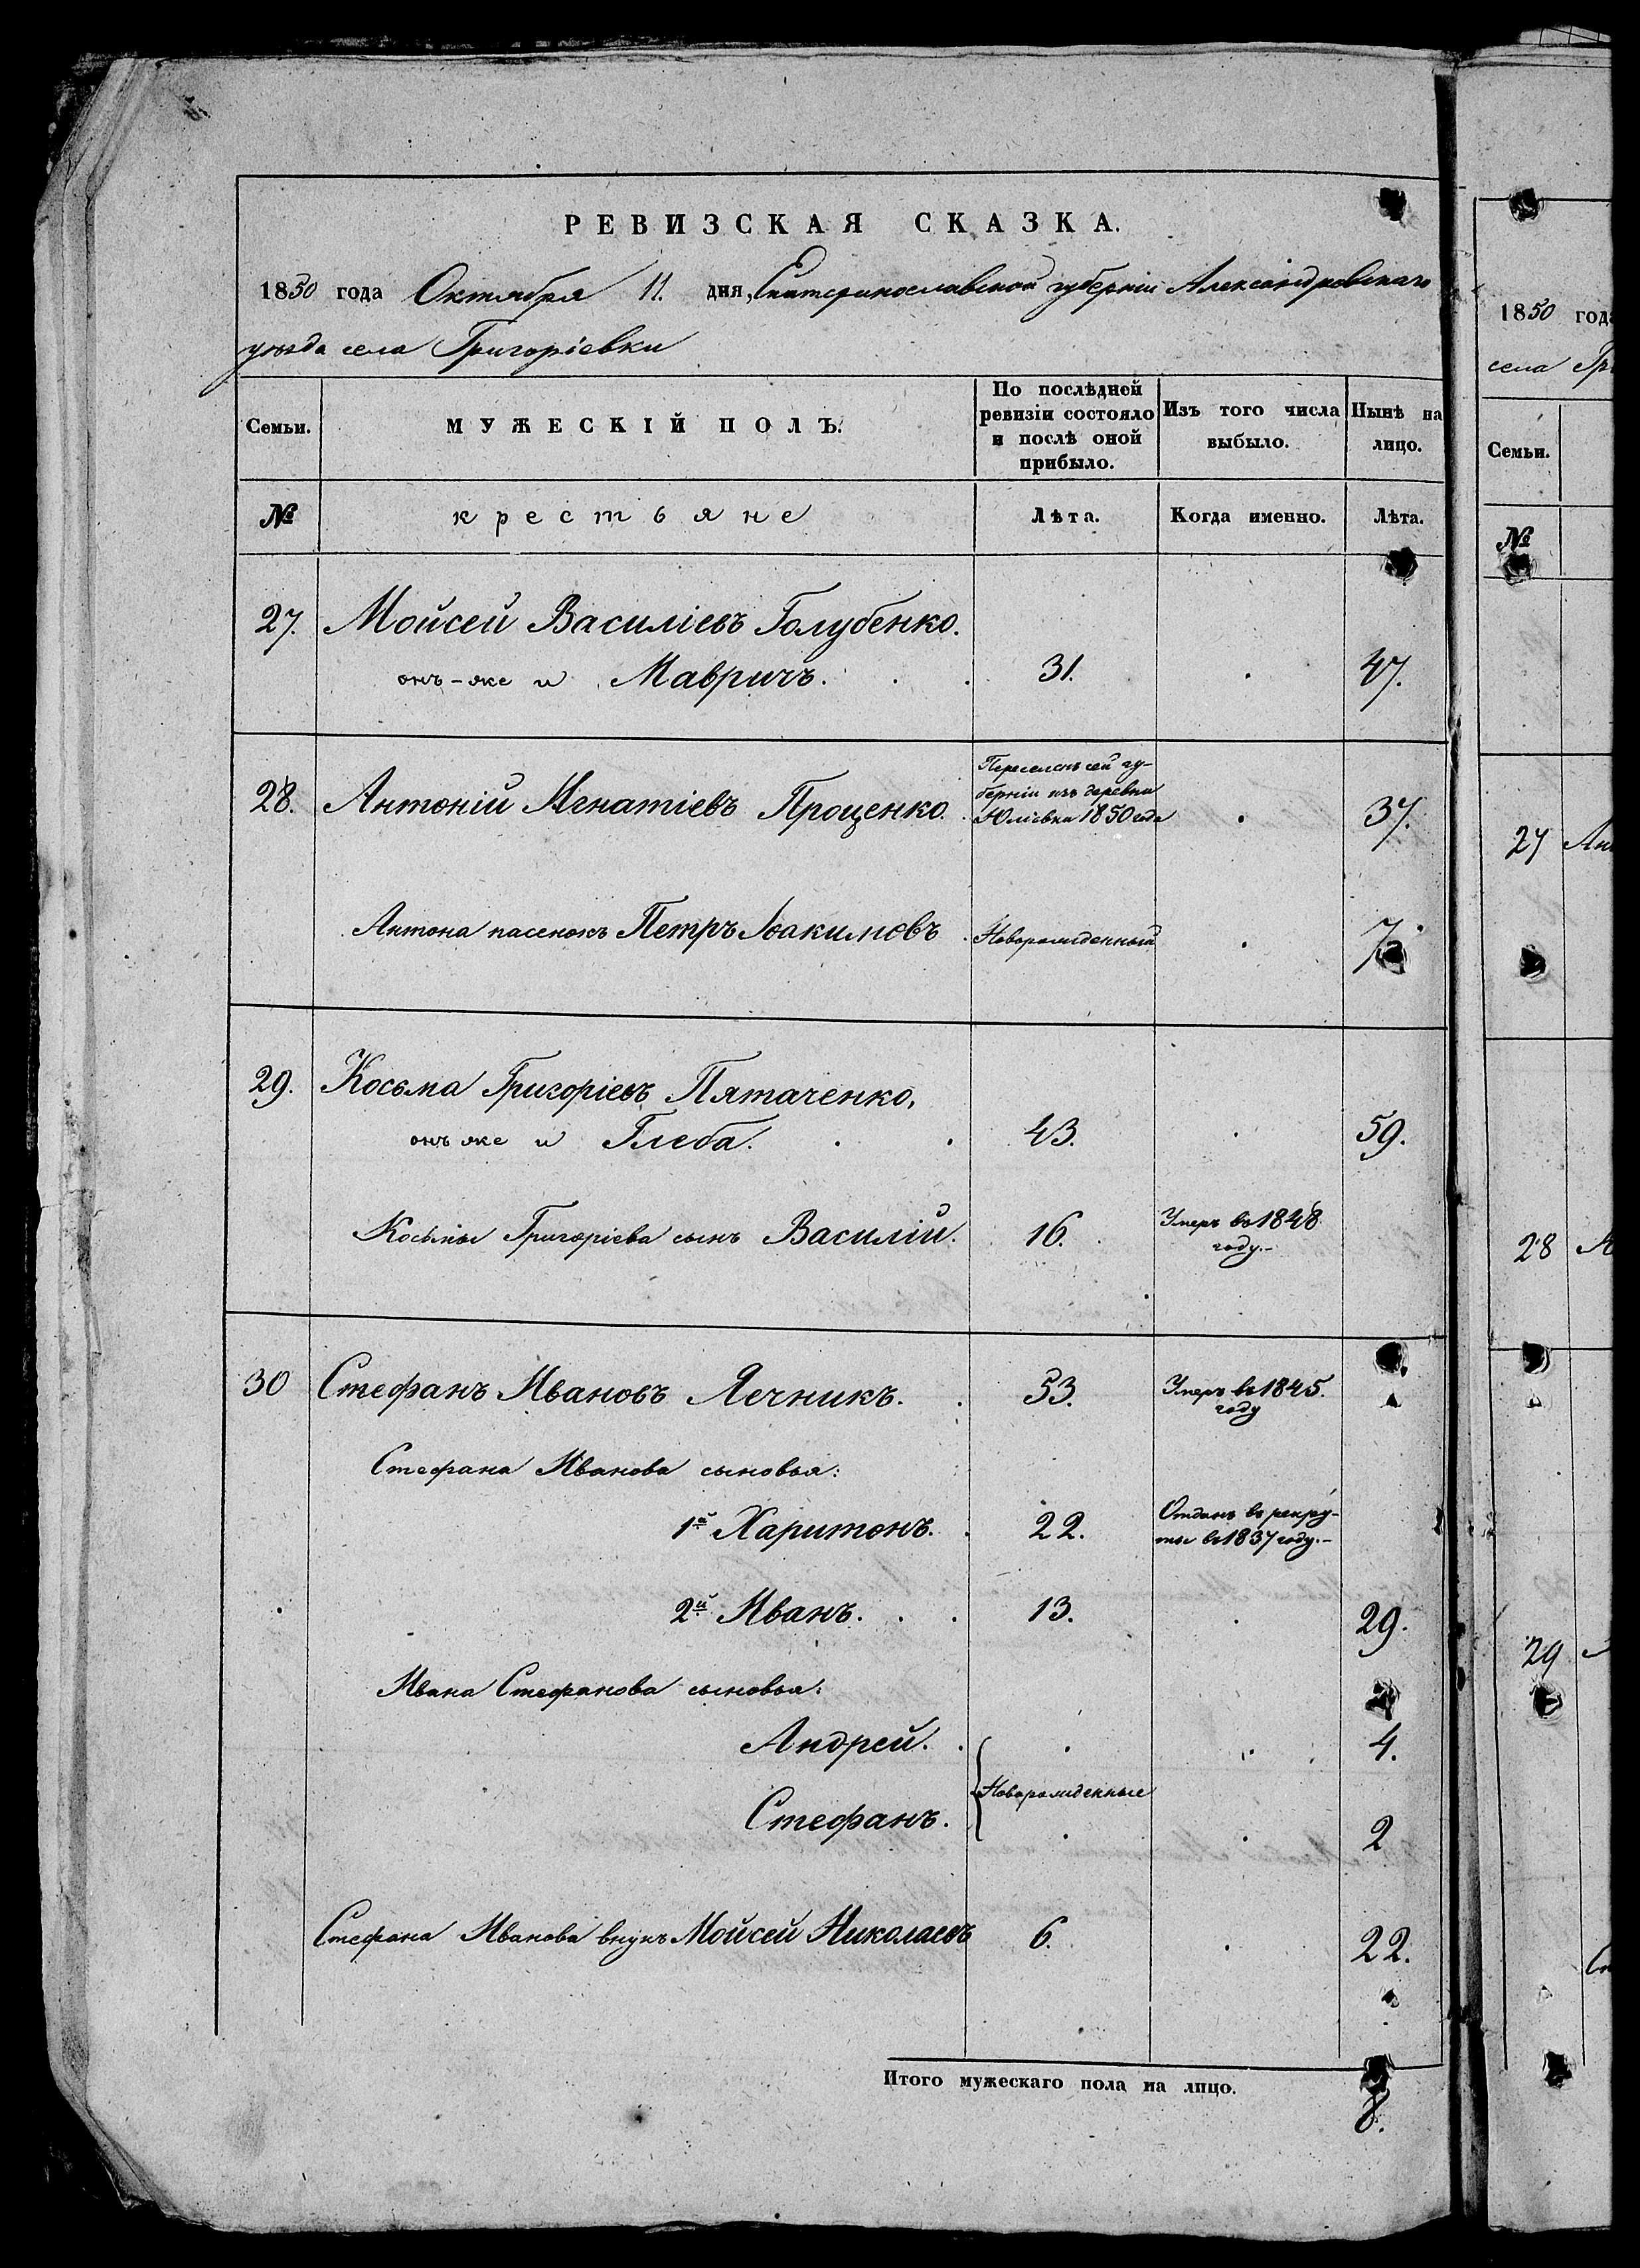 РЕВИЗСКАЯ СКАЗКА.
1850 года Октября 11. дня, Екатеринославской губерніи Александровскаго
уѣзда села Григоріевки
Семьи.
МУЖЕСКІЙ ПОЛЪ.
По послѣдней
ревизіи состояло
и послѣ оной
прибыло.
Изъ того числа
выбыло.
Нынѣ на
лицо.
№
крестьяне
Лѣта.
Когда именно.
Лѣта.
27. Мойсей Василіевъ Голубенко.
онъ-же и Мавричъ. 31. 47.
Переселенъ сей гу-
берніи изъ деревни
28. Антоній Игнатіевъ Проценко. Юліевки 1850 года 37.
Антона пасенокъ Петръ Іоакимовъ Новорожденный 7.
29. Косьма Григоріевъ Пятаченко,
онъ же и Глеба. 43. 59.
Косьмы Григоріева сынъ Василій. 16. Умеръ въ 1848
году.-
30 Стефанъ Ивановъ Ячникъ. 53. Умеръ въ 1845.
году
Стефана Иванова сыновья:
1й Харитонъ. 22. Отданъ въ рекру-
ты въ 1837 году.-
2й Иванъ. 13. 29.
Ивана Стефанова сыновья:
Андрей. 4.
Новорожденные
Стефанъ. 2
Стефана Иванова внукъ Мойсей Николаевъ 6. 22.
Итого мужескаго пола на лицо. 8.
1850 года
села Гр
Семьи.
№
27 Ан
28 А
29